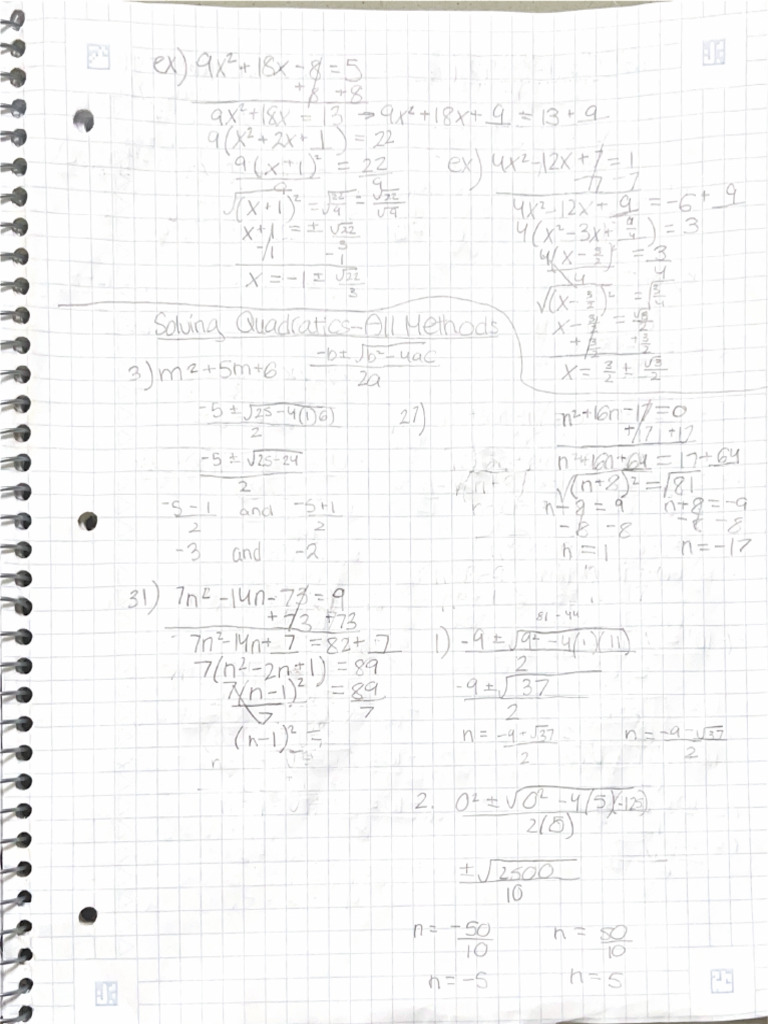 ex) 9x² + 18x - 8 = 5
+8 +8
9x² + 18x = 13 → 9x² + 18x + 9 = 13 + 9
9(x² + 2x + 1) = 22
9(x+1)² = 22
9 9
√(x+1)² = √22/9 = √22/√9
x+1 = ± √22/3
-1 -1
x = -1 ± √22/3
ex) 4x² - 12x + 7 = 1
-7 -7
4x² - 12x + 9 = -6 + 9
4(x² - 3x + 9/4) = 3
4(x - 3/2)² = 3
4 4
√(x - 3/2)² = √3/4
x - 3/2 = √3/2
+ 3/2 + 3/2
x = 3/2 ± √3/2
Solving Quadratics - All Methods
3) m² + 5m + 6 -b ± √b² - 4ac
2a
-5 ± √25 - 4(1)6)
2
-5 ± √25-24
2
-5-1 and -5+1
2 2
-3 and -2
27) n² + 16n - 17 = 0
+17 +17
n² + 16n + 64 = 17 + 64
√(n+8)² = √81
n+8 = 9 n+8 = -9
-8 -8 -8 -8
n = 1 n = -17
31) 7n² - 14n - 73 = 9
+73 +73
7n² - 14n + 7 = 82 + 7
7(n² - 2n + 1) = 89
7(n-1)² = 89
7 7
(n-1)² =
81 - 44
1) -9 ± √9² - 4(1)(11)
2
-9 ± √37
2
n = -9 + √37 n = -9 - √37
2 2
2. 0² ± √0² - 4(5)(-125)
2(5)
± √2500
10
n = -50 n = 50
10 10
n = -5 n = 5